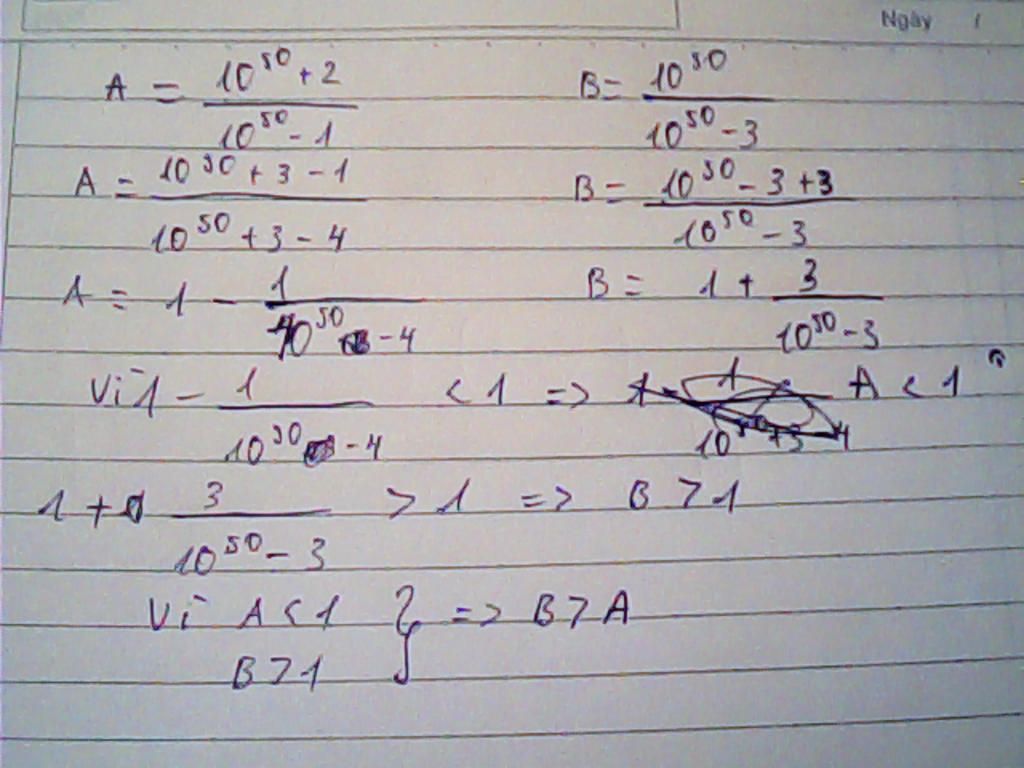 Ngày /
A = \frac{10^{50} + 2}{10^{50} - 1} B = \frac{10^{50}}{10^{50} - 3}
A = \frac{10^{50} + 3 - 1}{10^{50} + 3 - 4} B = \frac{10^{50} - 3 + 3}{10^{50} - 3}
A = 1 - \frac{1}{10^{50} - 4} B = 1 + \frac{3}{10^{50} - 3}
Vì 1 - \frac{1}{10^{50} - 4} < 1 => A < 1
1 + \frac{3}{10^{50} - 3} > 1 => B > 1
Vì A < 1 } => B > A
B > 1